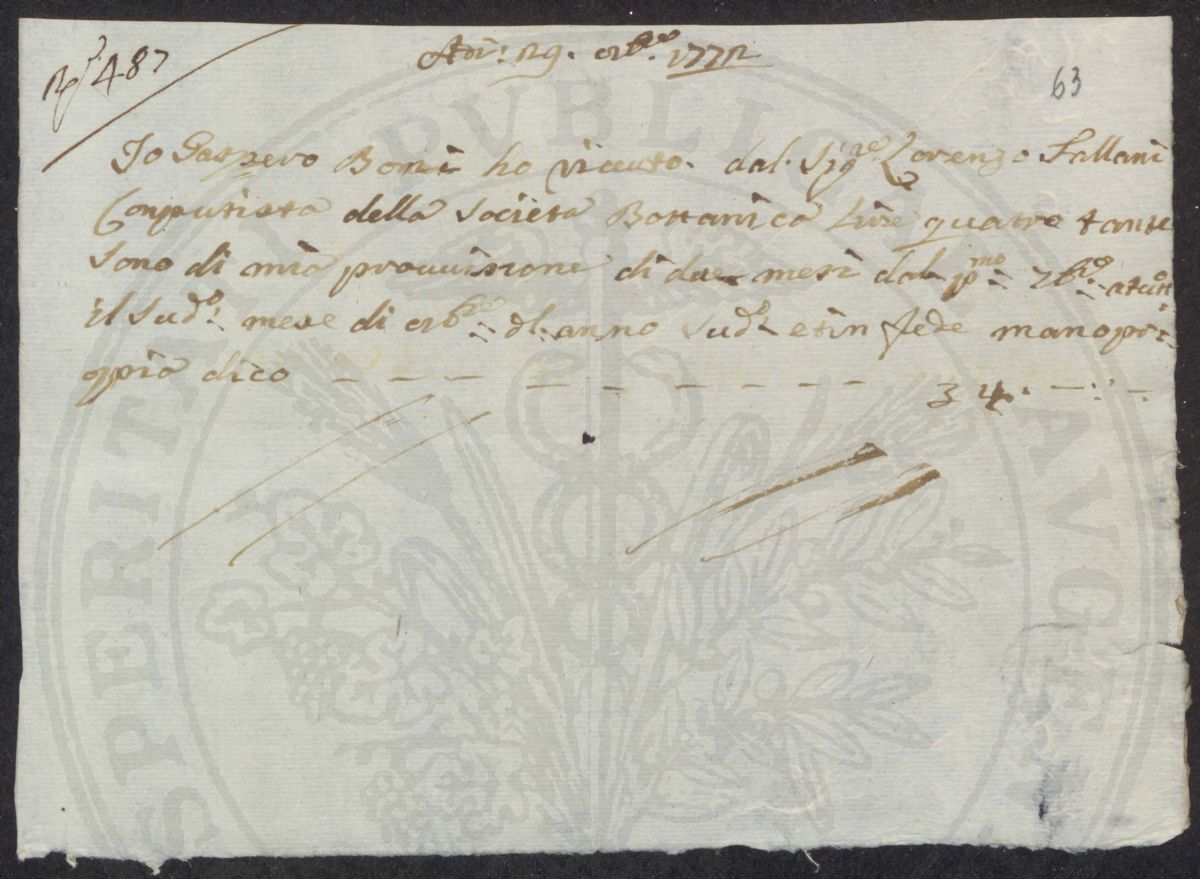 487
Adì: 29. 8bre. 1772
63
Io Gaspero Boni ho riceuto. dal. Sigre Lorenzo Fallani
Conputista della Società Bottanica Lire quatro tante
Sono di mia provuisione di due mesi dal pmo 7bre. atuto
il Sudo: mese di 8bre dl. anno Sudo: et in fede mano pro=
ppia dico — — — — — — — — — — 3 4. — :: —
PROSPERITATI PUBLICAE AUGENDAE